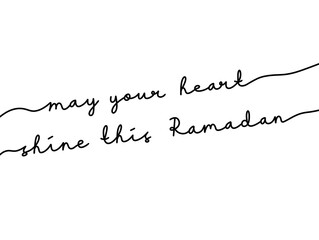 may your heart
shine this Ramadan